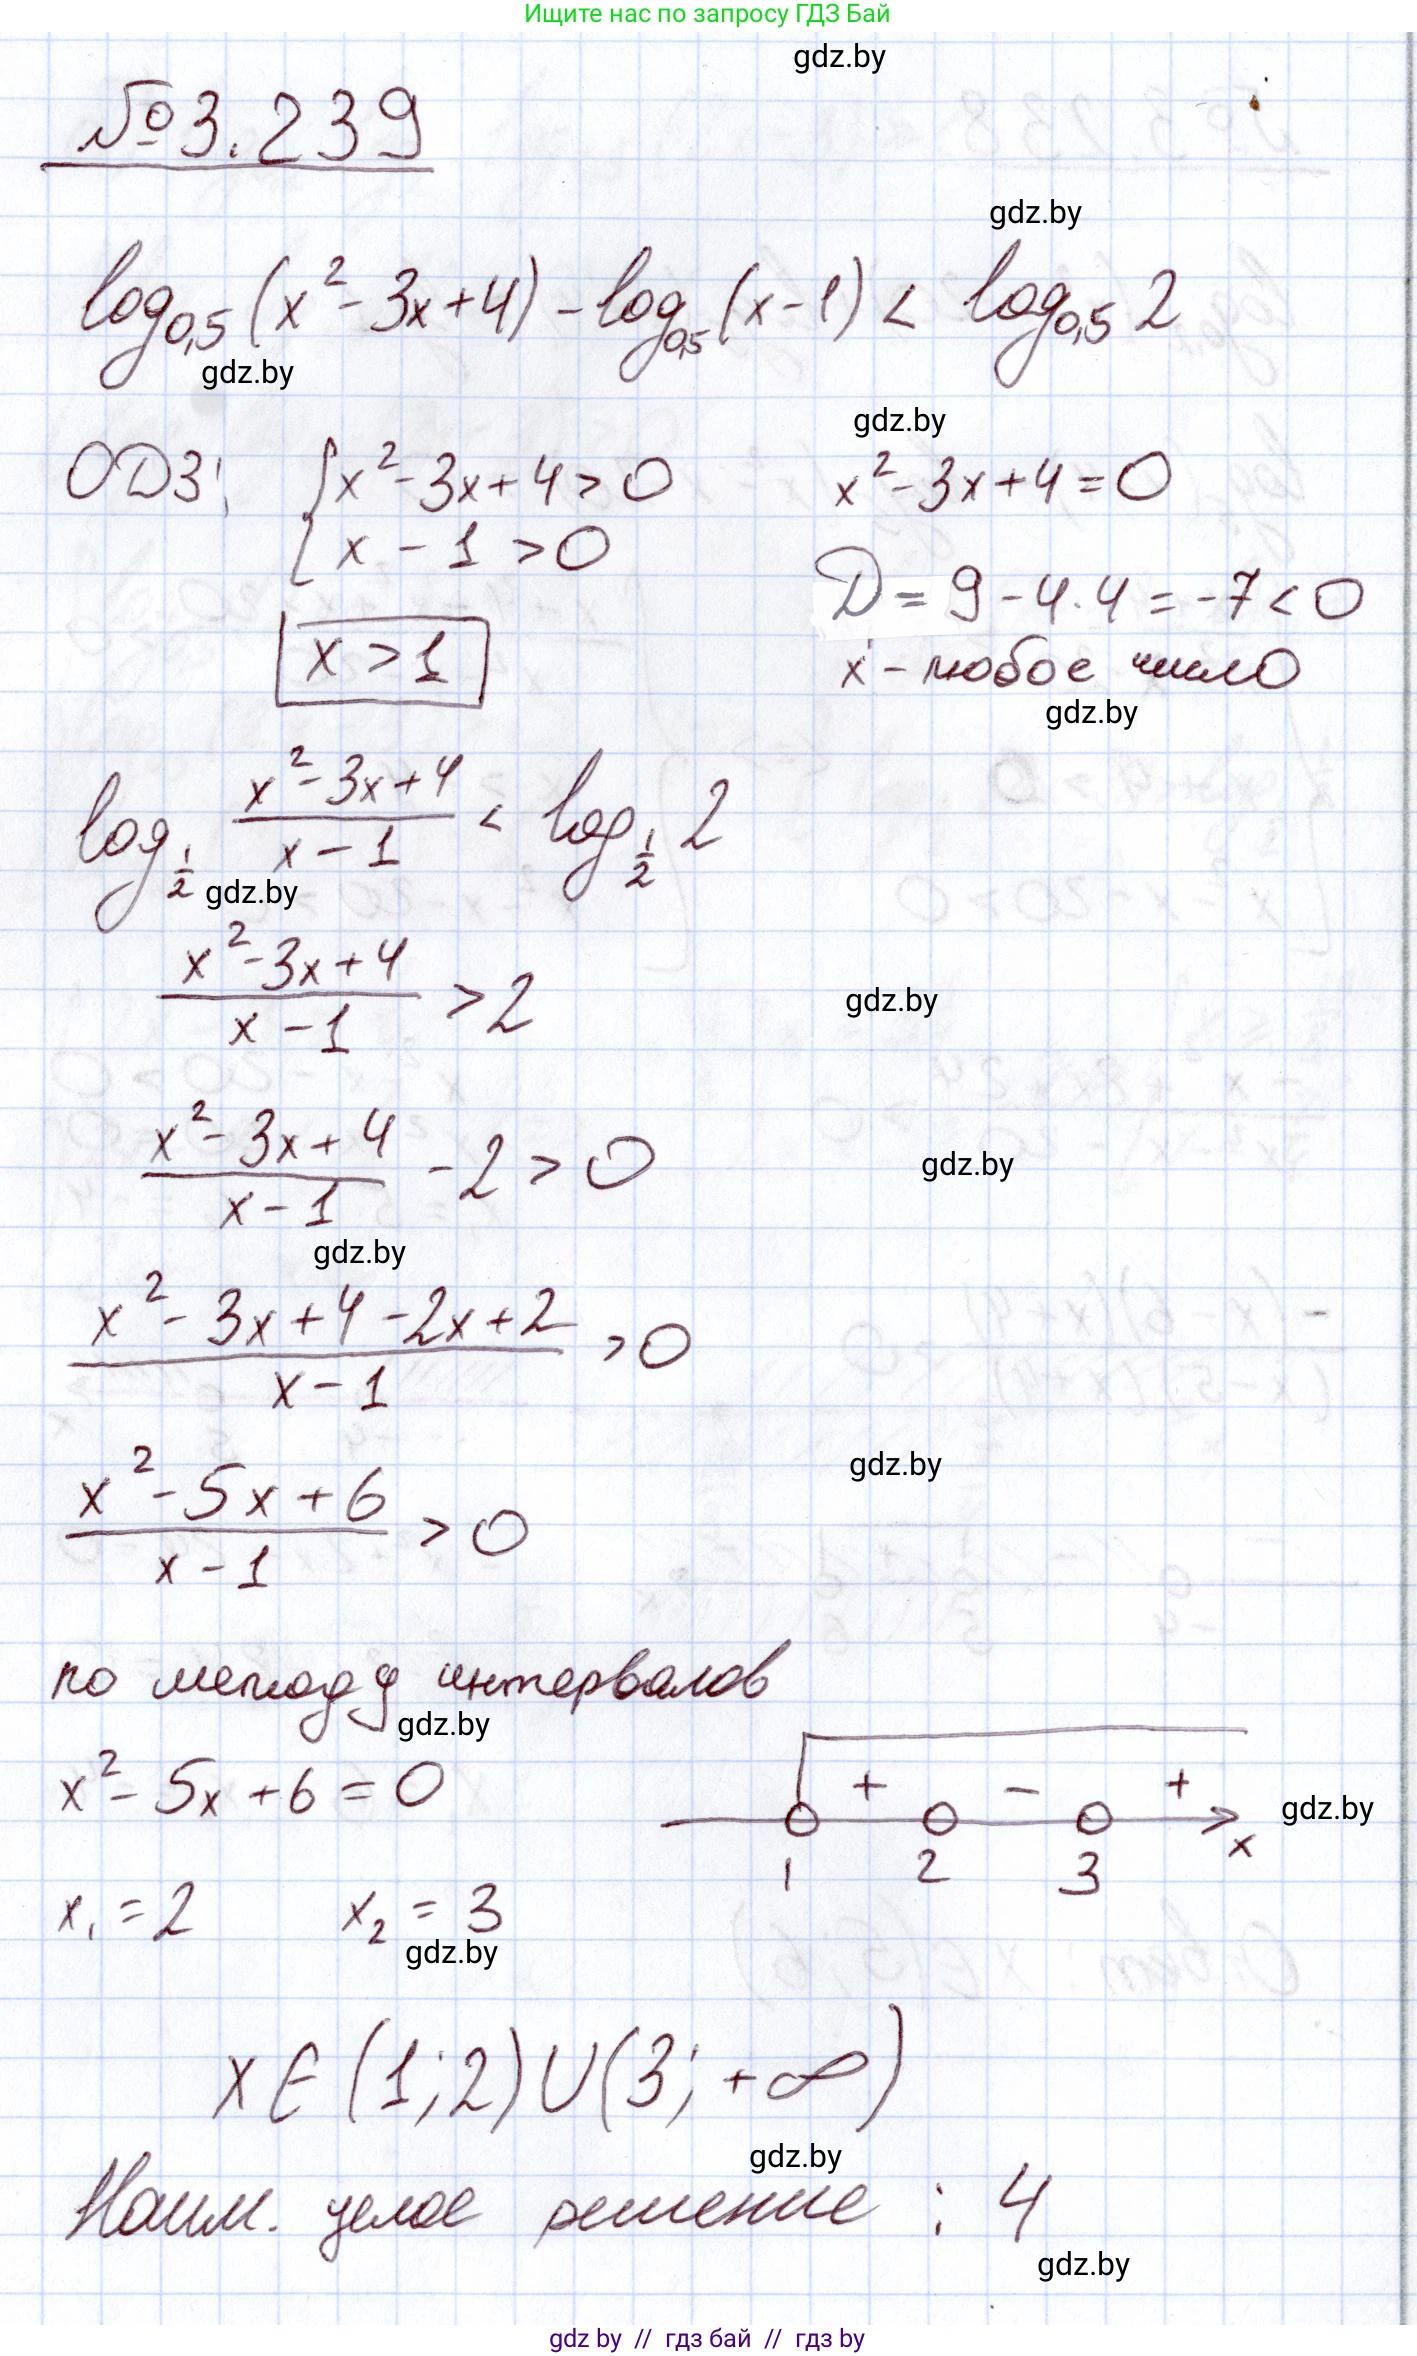 Ищите нас по запросу ГДЗ Бай
gdz.by
№3.239
gdz.by
log₀,₅(x²-3x+4)-log₀,₅(x-1)< log₀,₅2
gdz.by
gdz.by
ОДЗ: {x²-3x+4>0 x²-3x+4=0
x-1>0 D=9-4·4=-7<0
x>1 x-любое число
gdz.by
log_{1/2} (x²-3x+4)/(x-1) < log_{1/2} 2
gdz.by
(x²-3x+4)/(x-1) >2
gdz.by
(x²-3x+4)/(x-1) -2>0
gdz.by
gdz.by
(x²-3x+4-2x+2)/(x-1) >0
gdz.by
(x²-5x+6)/(x-1) >0
по методу интервалов
gdz.by
x²-5x+6=0 + - +
gdz.by
1 2 3 x
x₁=2 x₂=3
gdz.by
x∈(1;2)∪(3;+∞)
gdz.by
Наим. целое решение : 4
gdz.by
gdz by // гдз бай // гдз by